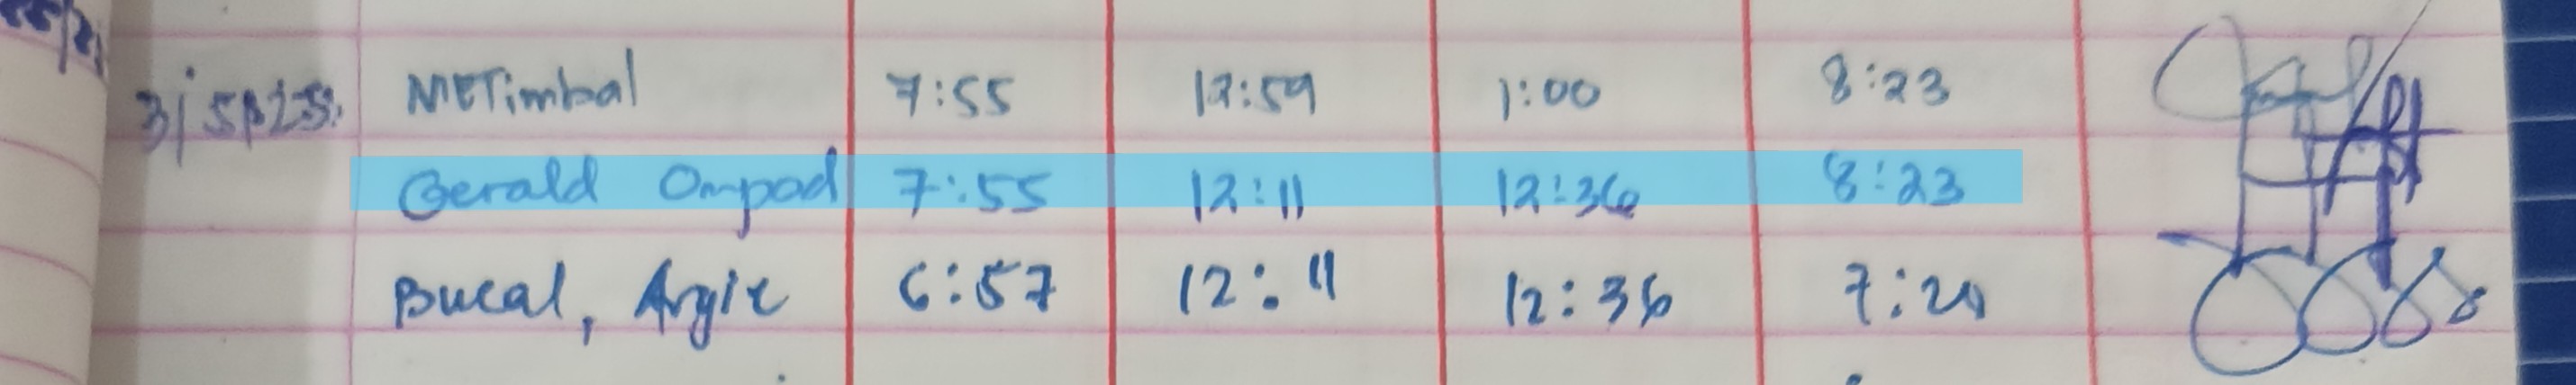 3/5/25. METimbal 7:55 12:59 1:00 8:23
Gerald Ompad 7:55 12:11 12:36 8:23
Bucal, Argie 6:57 12:11 12:36 7:21